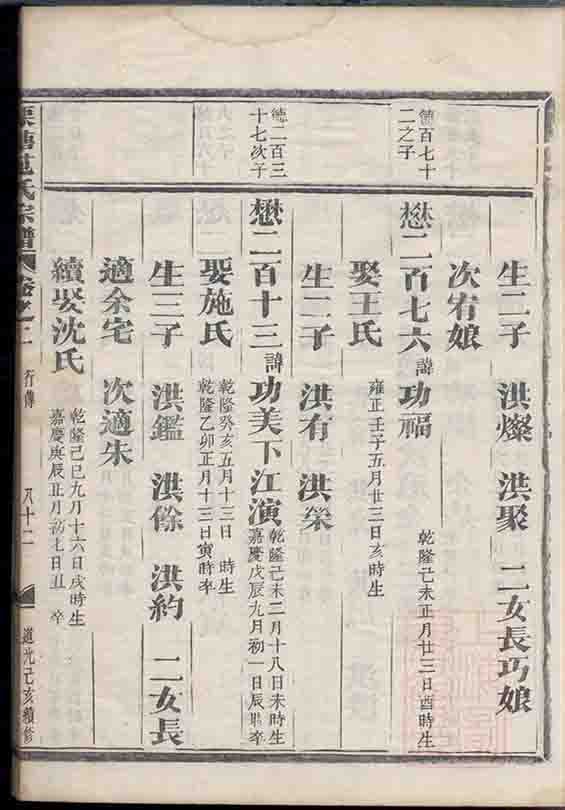 生二子　洪燦　洪聚　二女長巧娘
次宕娘
德百七十
二之子
懋二百七六諱功福　乾隆己未正月廿三日酉時生
娶王氏　雍正壬子五月廿三日亥時生
生二子　洪有　洪榮
德二百三
十七次子
懋二百十三諱功美下江演
乾隆己未二月十八日未時生
嘉慶戊辰九月初一日辰時卒
娶施氏
乾隆癸亥五月十三日　時生
乾隆乙卯正月十三日寅時卒
生三子　洪鑑　洪餘　洪約　二女長
適余宅　次適朱
續娶沈氏
乾隆己巳九月十六日戌時生
嘉慶庚辰正月初七日丑　卒
氏宗譜　卷之二　行傳　八十二　道光己亥續修